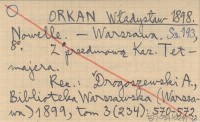 ORKAN Władysław 1898.
Nowelle. - Warszawa.
8°. Z przedmową Kaz. Tet-
majera.
Rec.: Drogoszewski A.,
Biblioteka Warszawska (Warsza-
wa) 1899, tom 3 (234) 570-572.